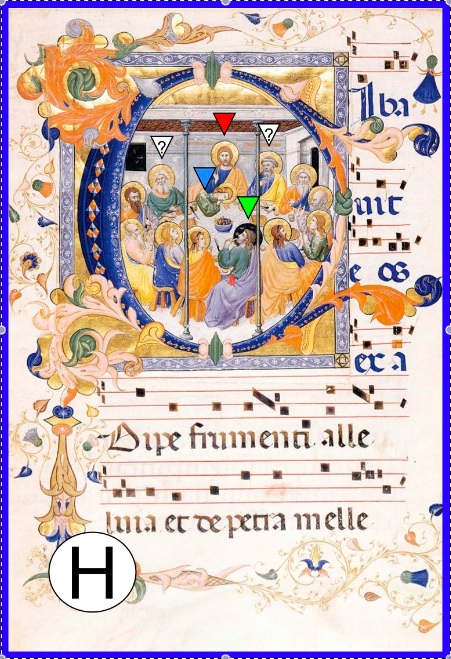 C Iba
? ?
uit
e os
ex a
Dipe frumenti alle
luia et de petra melle
H